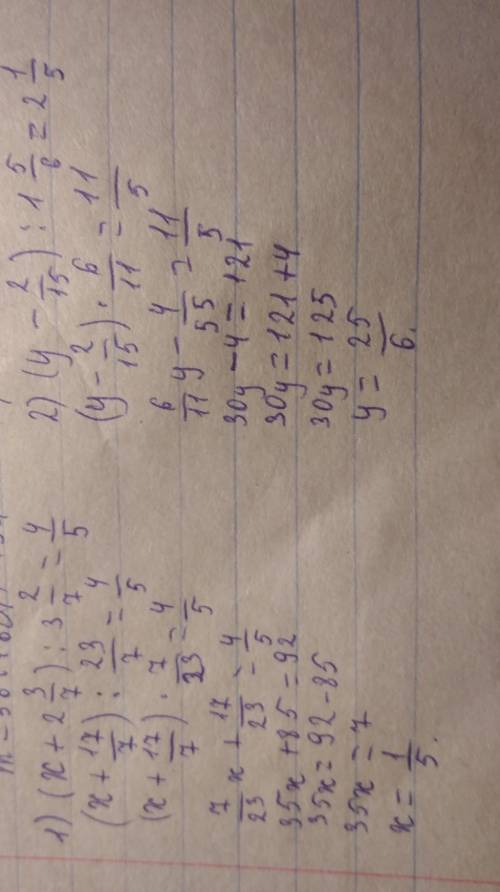 1) (x + 2 3/7) : 3 2/7 = 4/5
(x + 17/7) : 23/7 = 4/5
(x + 17/7) · 7/23 = 4/5
7/23 x + 17/23 = 4/5
35x + 85 = 92
35x = 92 - 85
35x = 7
x = 1/5.
2) (y - 2/15) : 1 5/6 = 2 1/5
(y - 2/15) · 6/11 = 11/5
6/11 y - 4/55 = 11/5
30y - 4 = 121
30y = 121 + 4
30y = 125
y = 25/6.